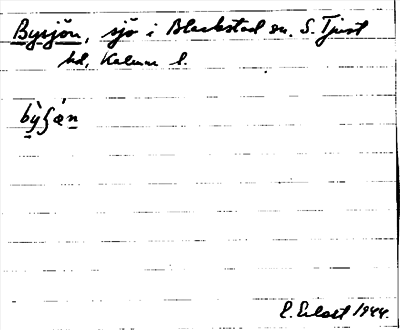 Bysjön, sjö i Blackstad sn. S. Tjust
hd, Kalmar l.
bỳʃə́n
E. Eklost 1944.